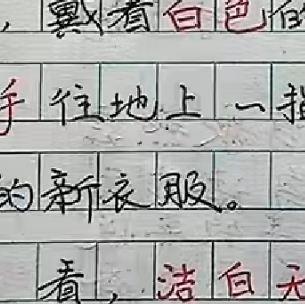 ，戴着白色的
手往地上一指
的新衣服。
看，洁白无